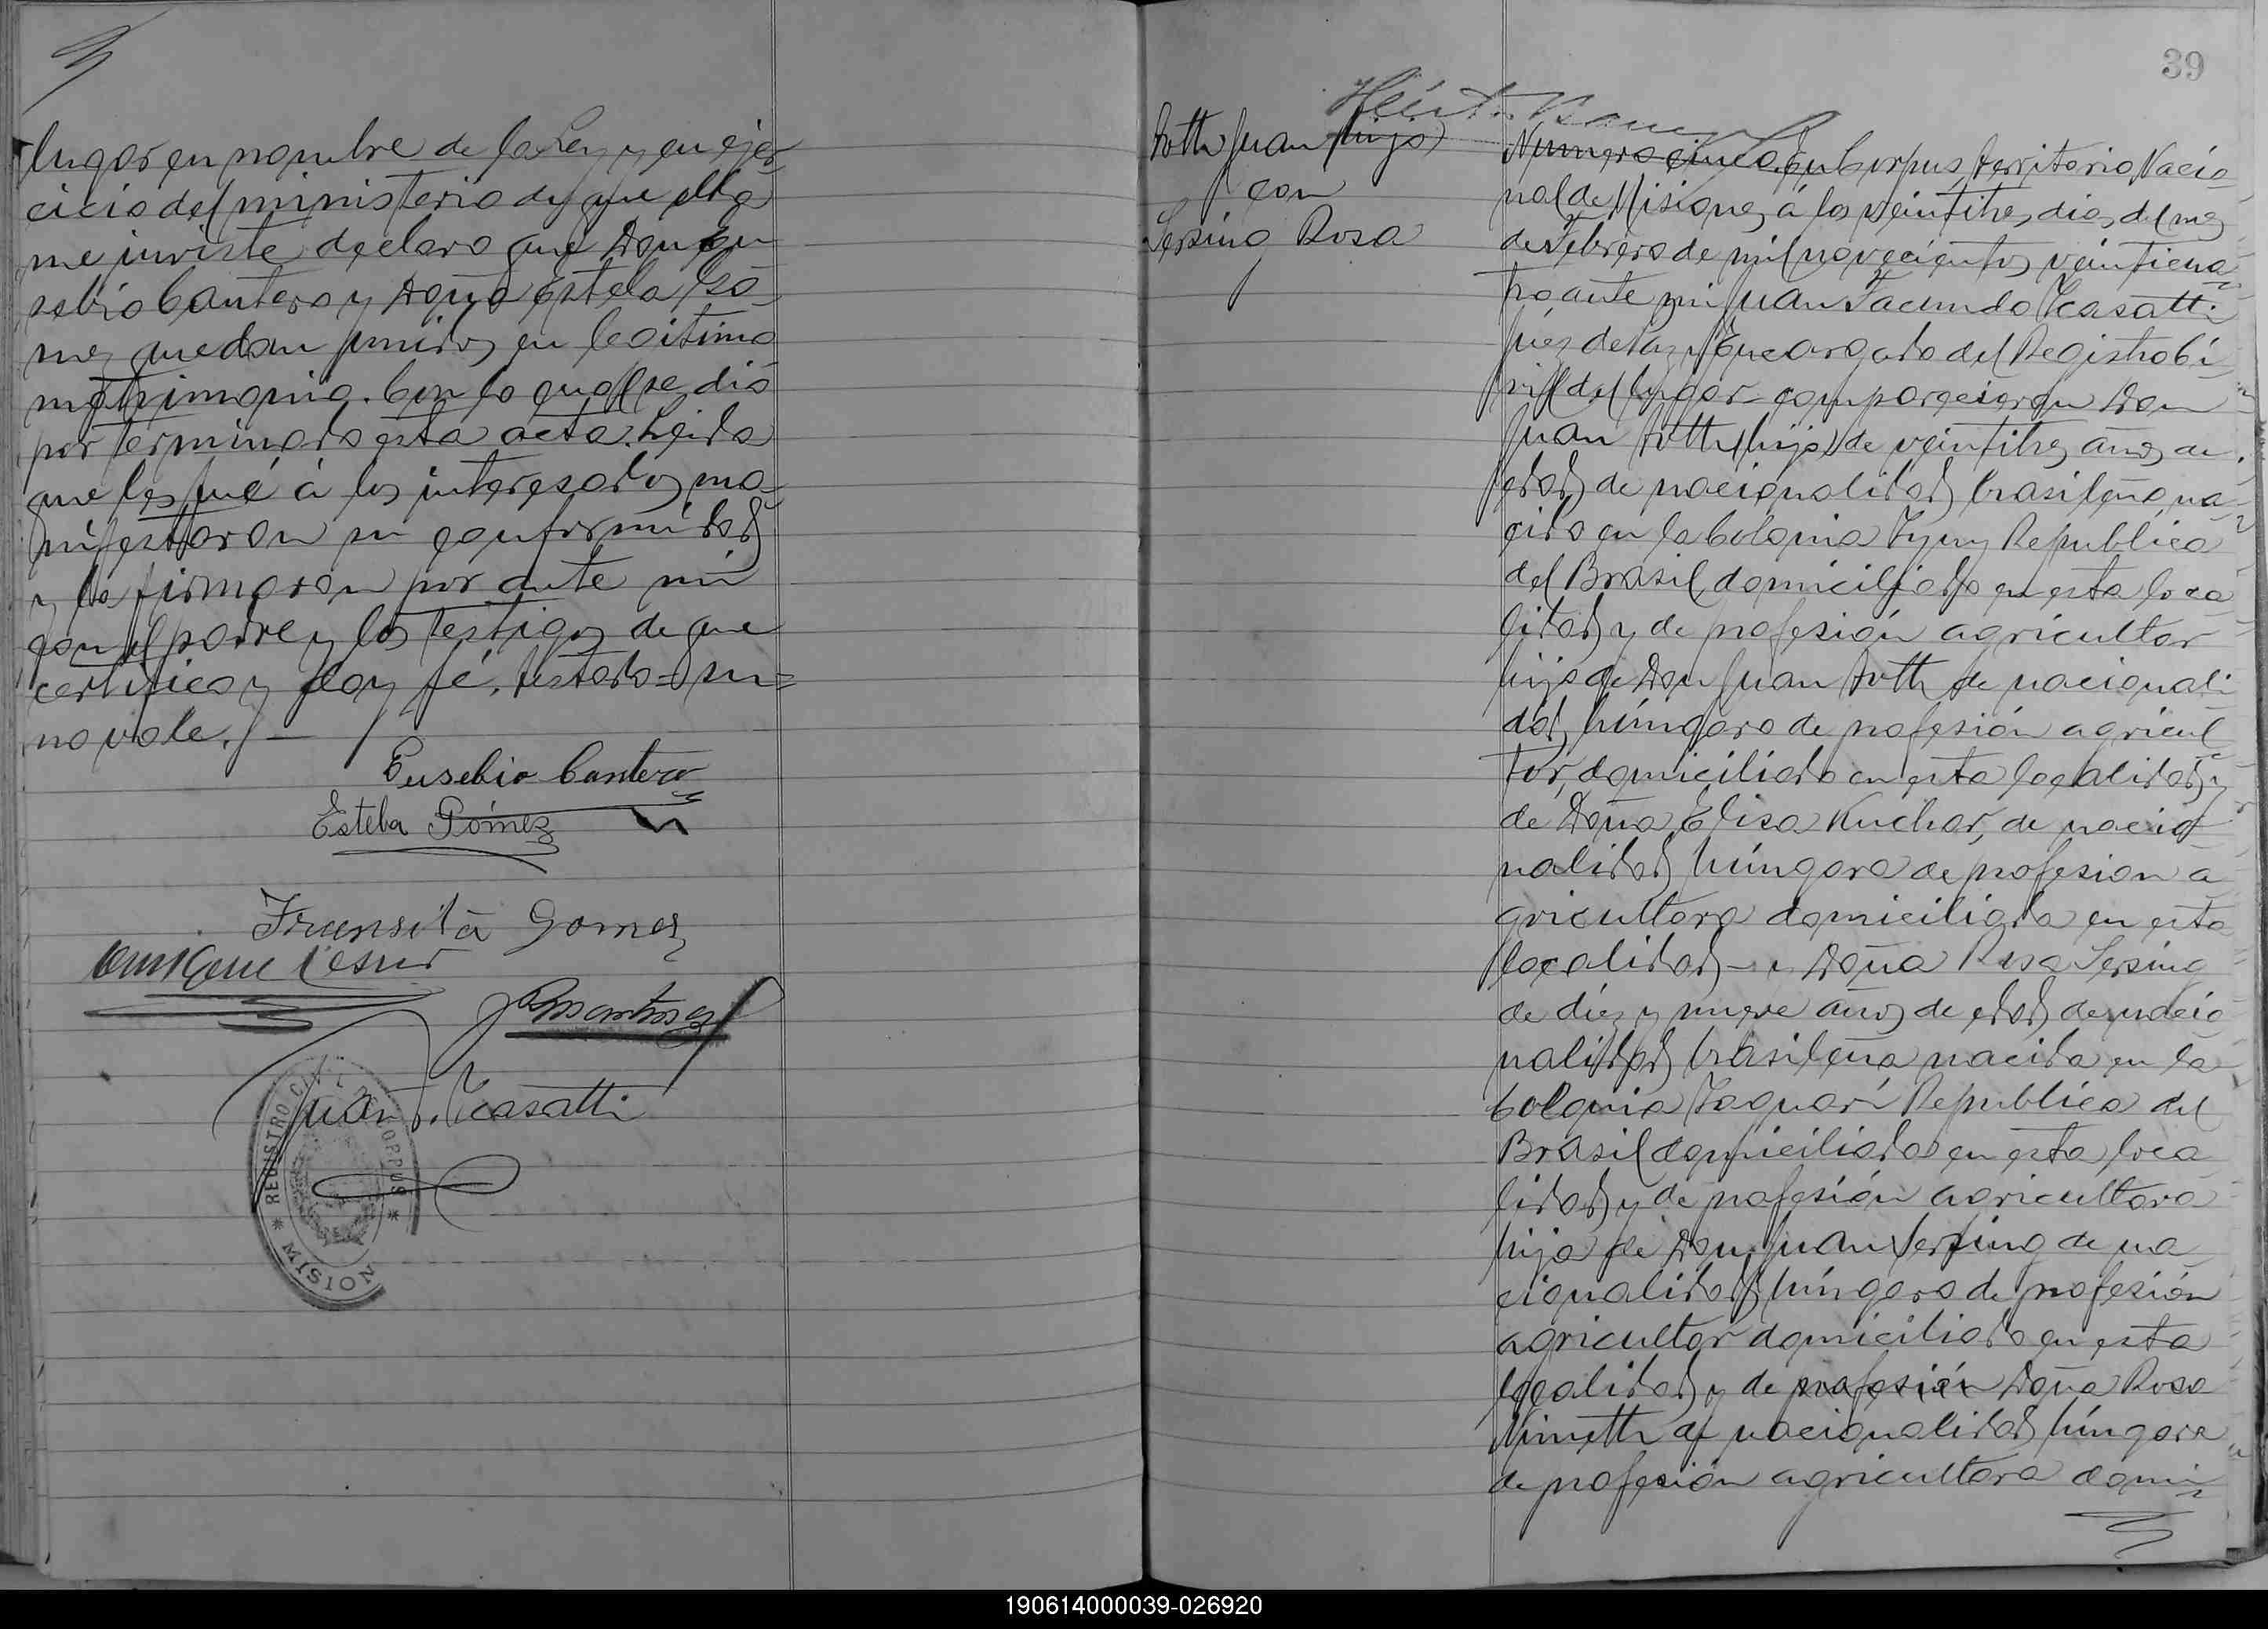 lugar en nombre de la Ley y en ejer-
cicio del ministerio de que ella
me inviste declaro que Don Eu
sebio Cantero y Doña Estela Gó-
mez quedan unidos en legítimo
matrimonio. Con lo qual se dió
por terminada esta acta. Leida
que les fué á los interesados, ma-
nifestaron su conformidad
y la firmaron por ante mi
con el padre y los testigos de que
certifico y doy fé. Testado=su=
no vale.—
Eusebio Cantero
Estela Gómez
Transita Gomez
Juan F. Icasatti
REGISTRO CIVIL DE CORPUS
* MISION
39
Totth Juan (hijo)
con
Sersing Rosa
Numero cinco. En Corpus, Territorio Nacio-
nal de Misiones á los veintitres dias del mes
de Febrero de mil novecientos veinticua-
tro ante mi Juan Facundo Icasatti
Juez de Paz y Encargado del Registro Ci-
vil del lugar comparecieron Don
Juan Totth (hijo) de veintitres años de
edad, de nacionalidad brasileña, na-
cido en la Colonia Republica
del Brasil domiciliado en esta loca
lidad y de profesión agricultor
hijo de Don Juan Totth de nacionali-
dad húngaro de profesión agricul
tor, domiciliado en esta localidad y
de Doña Elisa Kuchar, de nacio
nalidad húngara de profesion a
gricultora domiciliada en esta
localidad - y Doña Rosa Sersing
de diez y nueve años de edad de nacio
nalidad brasileña nacida en la
Colonia Taquari Republica del
Brasil domiciliada en esta loca
lidad y de profesión agricultora
hija de Don Juan Sersing de na
cionalidad húngaro de profesión
agricultor domiciliado en esta
localidad y de profesión Doña Rosa
Nimeth de nacionalidad húngara
de profesión agricultora domi-
190614000039-026920